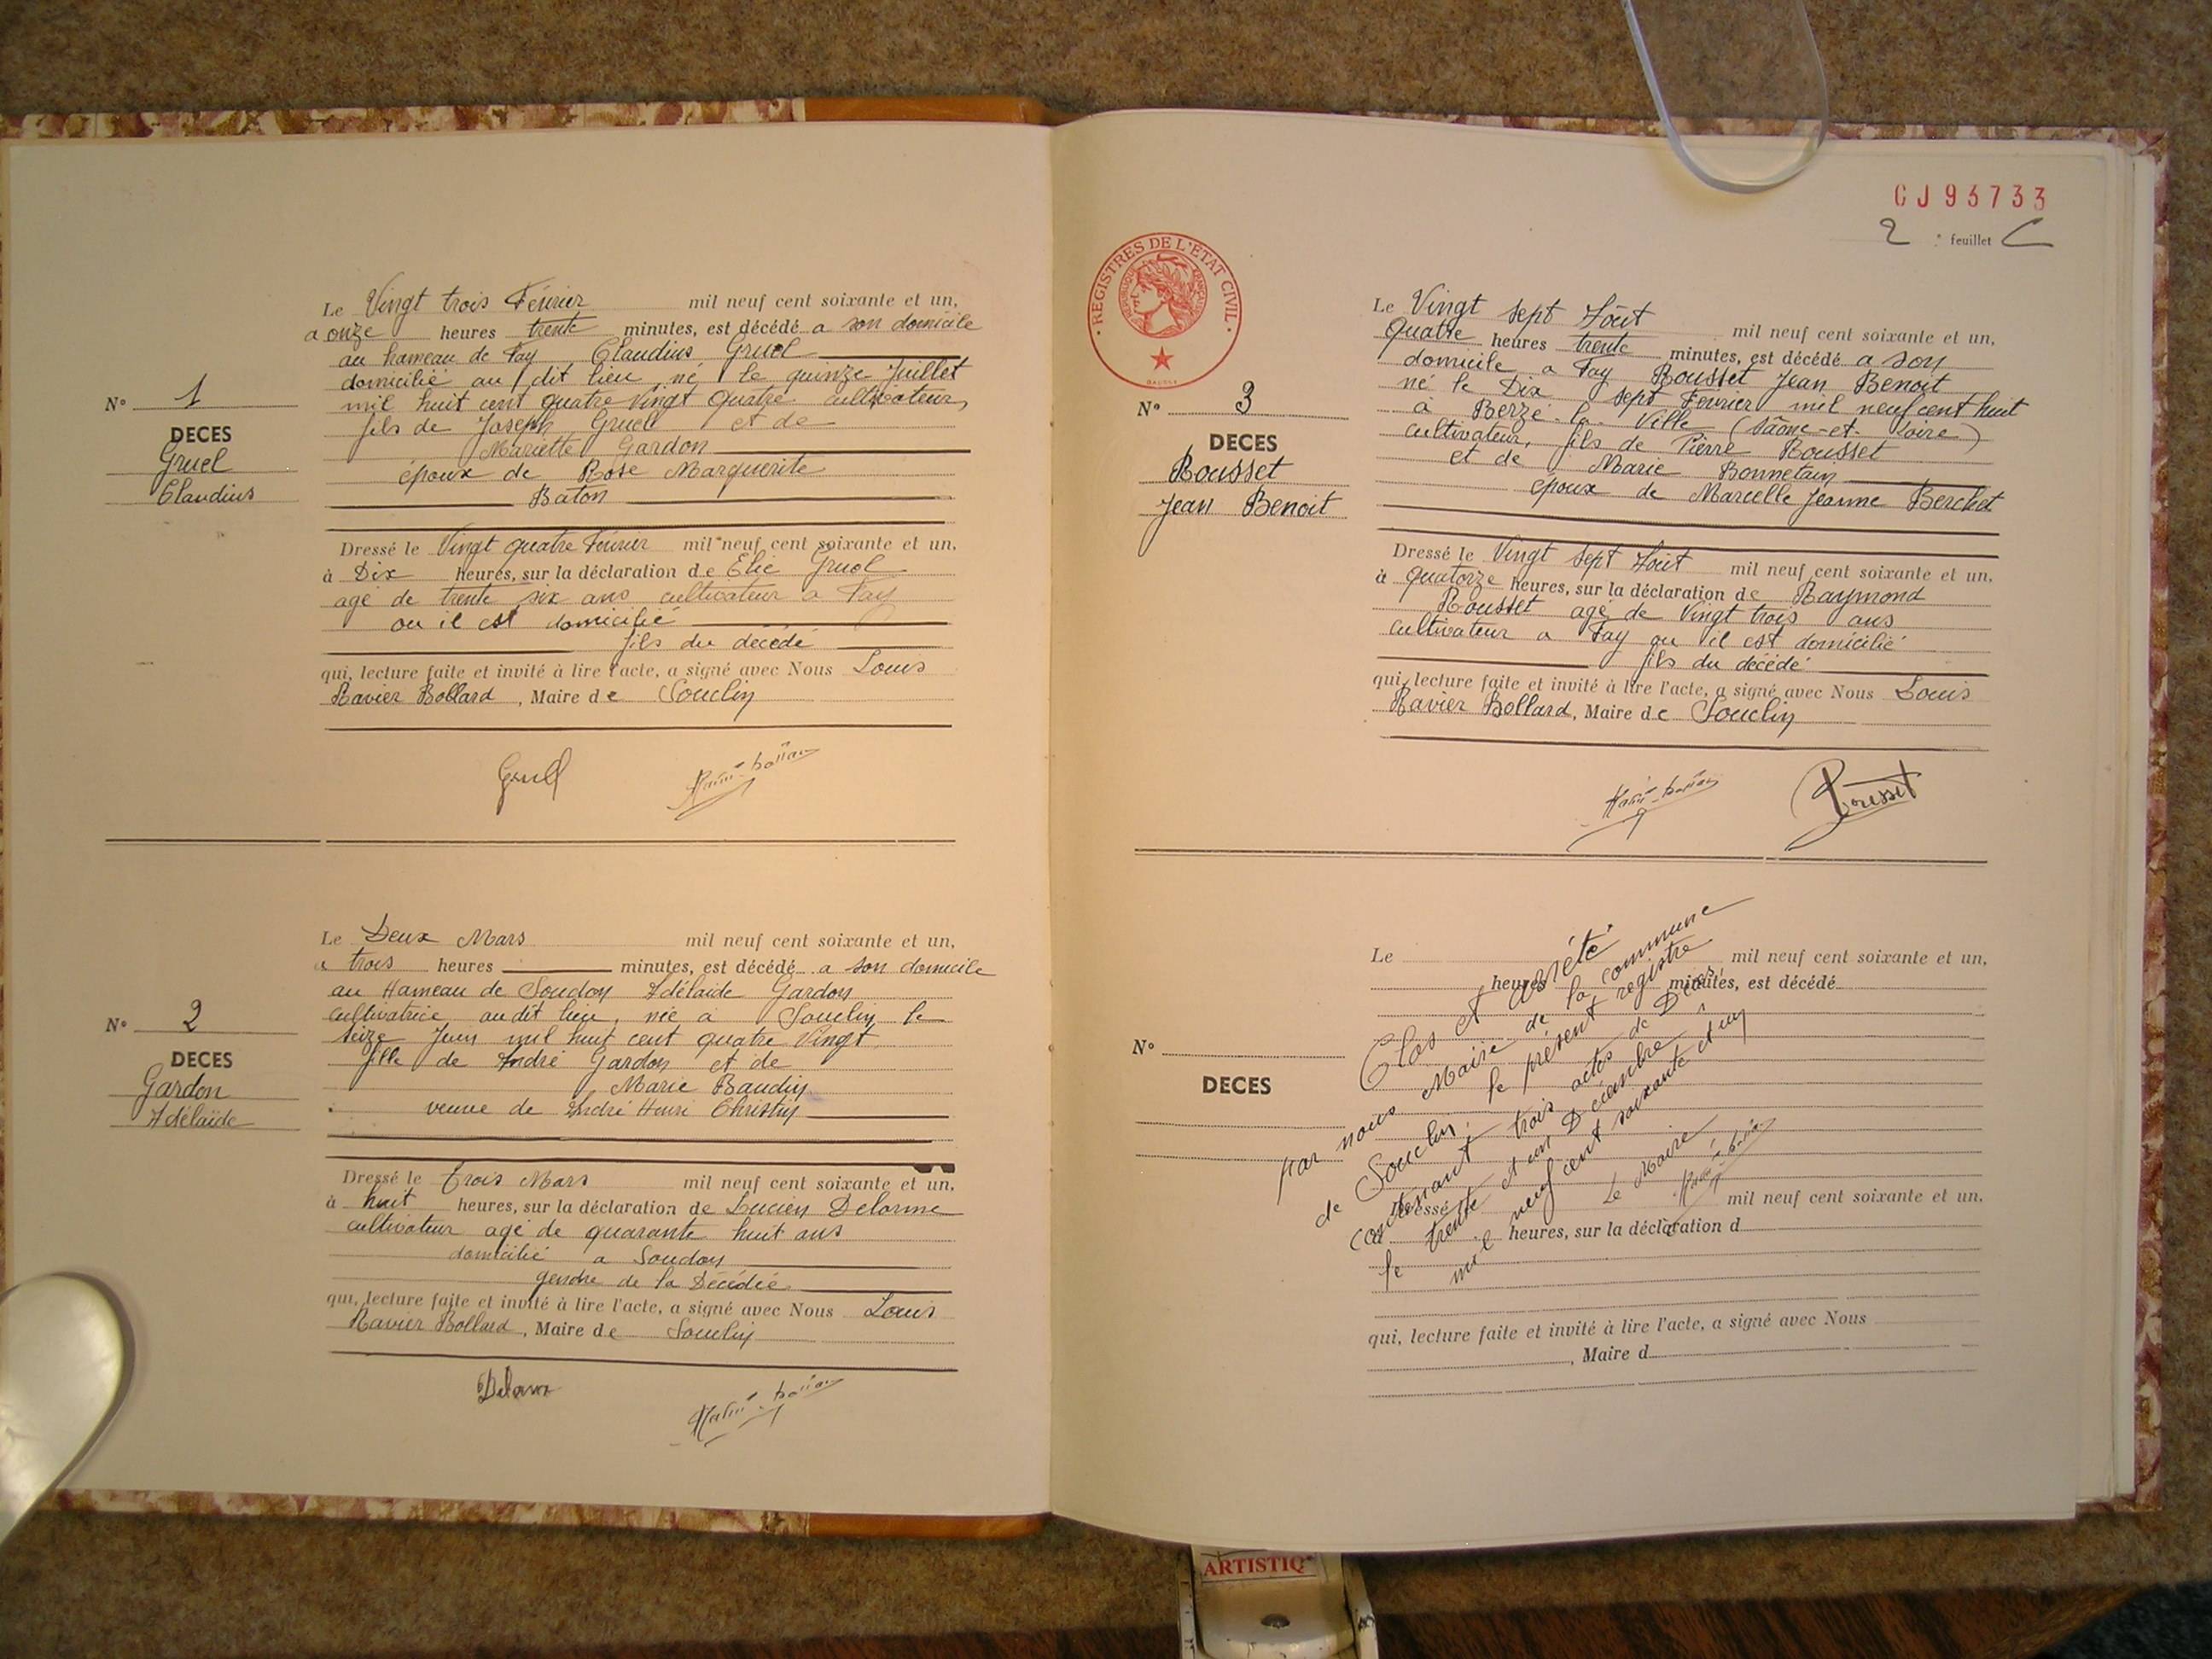 Le Vingt trois Février mil neuf cent soixante et un,
a onze heures trente minutes, est décédé a son domicile
au hameau de Fay Claudius Gruel
domicilié au dit lieu né le quinze Juillet
mil huit cent quatre Vingt Quatre cultivateur,
fils de Joseph Gruel et de
Mariette Gardon
époux de Rose Marguerite
Baton
N° 1
DECES
Gruel
Claudius
Dressé le Vingt quatre Février mil neuf cent soixante et un,
à Dix heures, sur la déclaration de Elie Gruel
agé de trente six ans cultivateur a Fay
ou il est domicilié
fils du décédé
qui, lecture faite et invité à lire l'acte, a signé avec Nous Louis
Ravier Bollard, Maire de Souclin
Gruel
Le Deux Mars mil neuf cent soixante et un,
a trois heures minutes, est décédé a son domicile
au Hameau de Soudon Adélaide Gardon
cultivatrice audit lieu, née a Souclin le
seize Juin mil huit cent quatre Vingt
fille de André Gardon et de
Marie Baudin
veuve de André Henri Christin
N° 2
DECES
Gardon
Adélaïde
Dressé le trois Mars mil neuf cent soixante et un,
à huit heures, sur la déclaration de Lucien Delorme
cultivateur agé de quarante huit ans
domicilié a Soudon
gendre de la Décédée
qui, lecture faite et invité à lire l'acte, a signé avec Nous Louis
Ravier Bollard, Maire de Souclin
CJ93733
2 e feuillet
REGISTRES DE L'ETAT CIVIL
REPUBLIQUE FRANÇAISE
Le Vingt sept Août mil neuf cent soixante et un,
Quatre heures trente minutes, est décédé a son
domicile a Fay Rousset Jean Benoit
né le Dix sept Fevrier mil neuf cent huit
à Berzé-la-Ville (Saône-et-Loire)
cultivateur, fils de Pierre Rousset
et de Marie Bonnetain
époux de Marcelle Jeanne Berchet
N° 3
DECES
Rousset
Jean Benoit
Dressé le Vingt sept Août mil neuf cent soixante et un,
à quatorze heures, sur la déclaration de Raymond
Rousset agé de Vingt trois ans
cultivateur a Fay ou il est domicilié
fils du décédé
qui, lecture faite et invité à lire l'acte, a signé avec Nous Louis
Ravier Bollard, Maire de Souclin
Rousset
Le mil neuf cent soixante et un,
heures minutes, est décédé
N°
DECES
Clos et arrété
par nous Maire de la commune
de Souclin, le présent registre
contenant trois actes de Décès,
le trente et un Décembre
mil neuf cent soixante et un
Le Maire
Dressé mil neuf cent soixante et un,
heures, sur la déclaration d
qui, lecture faite et invité à lire l'acte, a signé avec Nous
, Maire d
ARTISTIQ